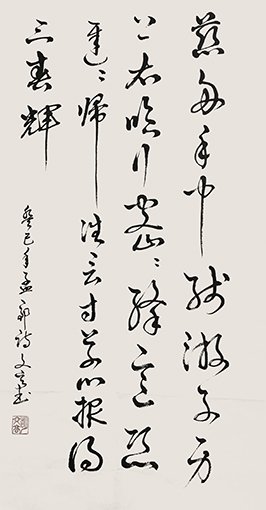 慈母手中線游子身
上衣臨行密々縫意恐
遲々歸誰言寸草心報得
三春輝
癸巳年孟郊詩文書